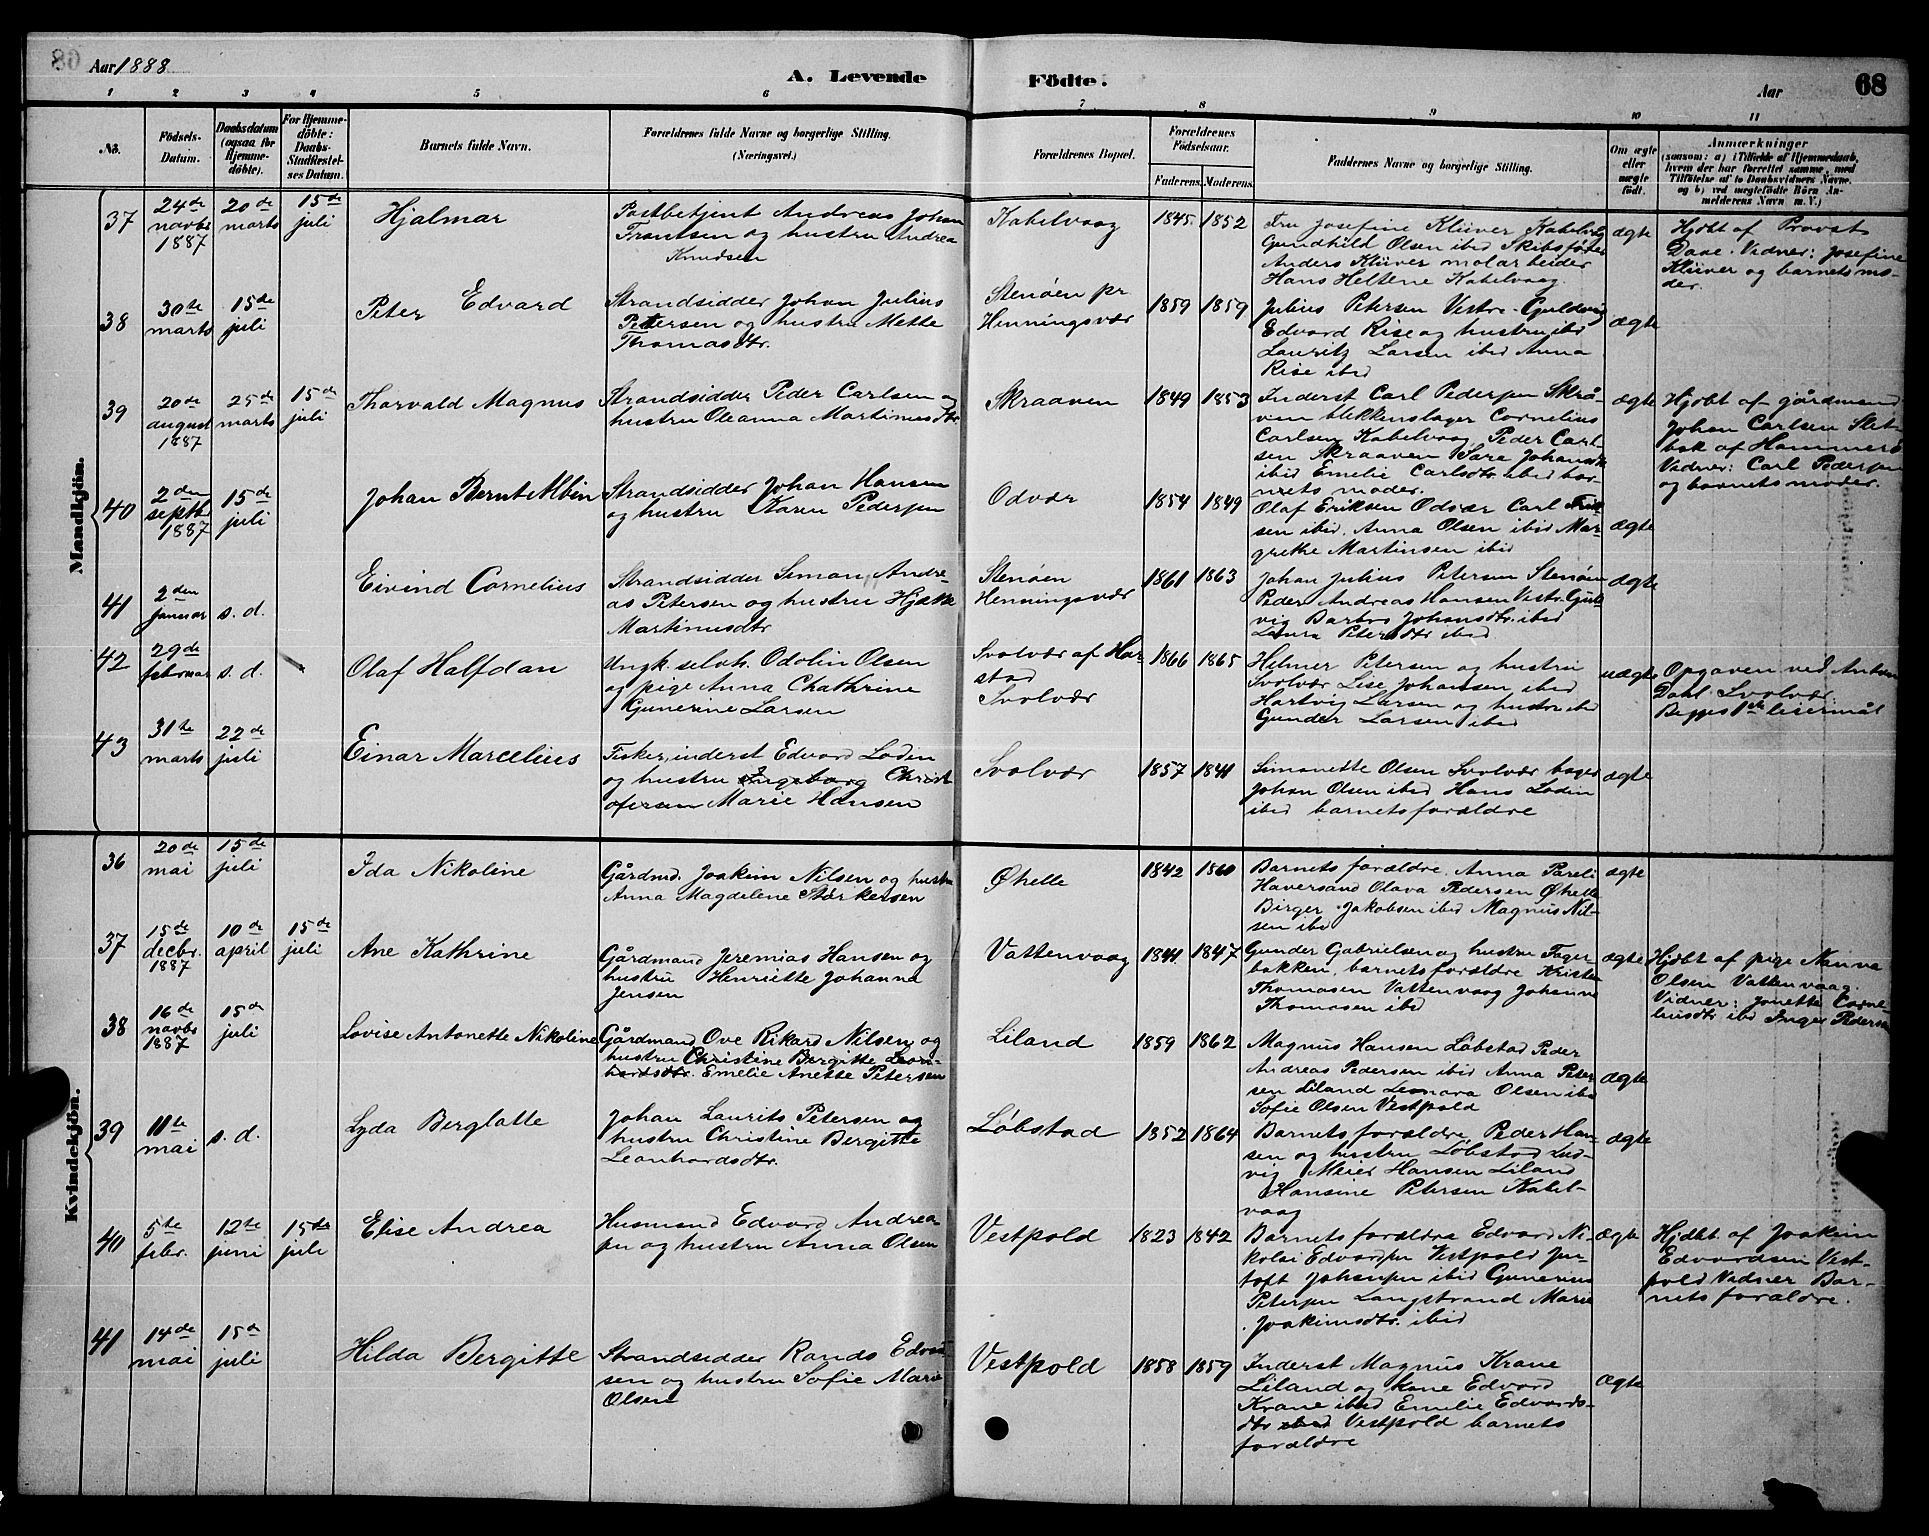 Aar 1888
A. Levende Födte.
Aar
68
1 2 3 4 5 6 7 8 9 10 11
No.
Födsels-Datum.
Daabsdatum (ogsaa for Hjemmedöbte).
For Hjemmedöbte: Daabs-Stadfæstelses Datum.
Barnets fulde Navn.
Forældrenes fulde Navne og borgerlige Stilling. (Næringsvei.)
Forældrenes Bopæl.
Forældrenes Födselsaar.
Faderens. Moderens.
Faddernes Navne og borgerlige Stilling.
Om ægte eller uægte födt.
Anmærkninger
(saasom: a) i Tilfælde af Hjemmedaab, hvem der har forrettet samme, med Tilföielse af to Daabsvidners Navne, og b) ved uægtefödte Börn Anmelderens Navn m. V.)
Mandkjön.
37
24de novbr 1887
20de marts
15de juli
Hjalmar
Postbetjent Andreas Johan
Frantsen og hustru Andrea
Knudsen
Kabelvaag
1845. 1852
Fru Josefine Klüver Kabelvåg
Gundhild Olsen ibid Skibsfører
Anders Klüver molarbeider
Hans Heltene Kabelvaag
ægte
Hjdbt af Provst
Daae. Vidner: Josefine
Klüver og barnets mo-
der.
38
30te marts
15de juli
Peter Edvard
Strandsidder Johan Julius
Petersen og hustru Mette
Thomasdtr.
Stenøen pr
Henningsvær
1859 1859
Julius Petersen Vestre-Guldvig
Edvard Rise og hustru ibid
Lauritz Larsen ibid Anna
Rise ibid
ægte
39
20de august 1887
25de marts
15de juli
Thorvald Magnus
Strandsidder Peder Carlsen og
hustru Oleanna Martinusdtr.
Skraaven
1849 1853
Inderst Carl Pedersen Skrå-
ven blekkenslager Cornelius
Carlsen Kabelvaag, Peder Carl-
sen Skraaven Sara Johansdtr
ibid Emelie Carlsdtr ibid bar-
nets moder.
ægte
Hjdbt af gårdmand
Johan Carlsen Slet-
bak af Hammerø
Vidner: Carl Pedersen
og barnets moder.
40
2den septbr 1887
15de juli
Johan Bernt Albin
Strandsidder Johan Hansen
og hustru Karen Pedersen
Odvær
1854 1849
Olaf Eriksen Odvær Carl Erik-
sen ibid. Anna Olsen ibid Mar-
grethe Martinsen ibid
ægte
41
2den januar
s. d.
Eivind Cornelius
Strandsidder Simon Andre-
as Petersen og hustru
Martinusdtr
Stenøen
Henningsvær
1861 1863
Johan Julius Petersen Stenøen
Peder Andreas Hansen Vestr. Gul-
vig Barbro Johansdtr. ibid
Laura Petersdtr ibid
ægte
42
29de februar
s. d.
Olaf Halfdan
Ungk. selvh. Odolin Olsen
og pige Anna Chathrine
Gunerine Larsen
Svolvær af Har-
stad
Svolvær
1866 1865
Helmer Petersen og hustru
Svolvær Lise Johansen ibid
Hartvig Larsen og hustru ibid
Gunder Larsen ibid
uægte
Opgaven ved Anton
Dahl Svolvær.
Begges 1ste leiermål
43
31te marts
22de juli
Einar Marcelius
Fisker, inderst Edvard Loden
og hustru Ingeborg Christ-
ofersen Marie Hansen
Svolvær
1857 1841
Simonette Olsen Svolvær bager
Johan Olsen ibid Hans Lodin
ibid barnets forældre
ægte
Kvindekjön.
36
20de mai
15de juli
Ida Nikoline
Gårdmd. Joakim Nilsen og hustru
Anna Magdelene Størkersen
Øhelle
1842 1860
Barnets forældre. Anna Pareli
Haversand Olava Pedersen Øhelle
Birger Jakobsen ibid Magnus Nil-
sen ibid
ægte
37
15de decbr. 1887
10de april
15de juli
Ane Kathrine
Gårdmand Jeremias Hansen og
hustru Henriette Johanna
Jensen
Vattenvaag
1841. 1847
Gunder Gabrielsen og hustru Fager-
bakken, barnets forældre Kristen
Thomasen Vattenvaag Johanne
Thomasen ibid
ægte
Hjdbt af pige Nanna
Olsen Vattenvaag.
Vidner: Jonette Corne-
liusdtr ibid Inger Pedersen
38
16de novbr 1887
15de juli
Lovise Antonette Nikoline
Gårdmand Ove Rikard Nilsen og
hustru Christine Bergitte Leon-
hardsdtr. Emelie Anette Petersen
Liland
1859 1862
Magnus Hansen Løbstad Peder
Andreas Pedersen ibid Anna Peter-
sen Liland Leonora Olsen ibid
Sofie Olsen Vestpold
ægte
39
11te mai
s. d.
Lyda Berglatte
Johan Laurits Petersen og
hustru Christine Bergitte
Leonhardsdtr.
Løbstad
1852 1864
Barnets forældre Peder Han-
sen og hustru Løbstad Lud-
vig Meier Hansen Liland
Hansine Petersen Kabel-
vaag
ægte
40
5te febr.
12te juni
15de juli
Elise Andrea
Husmand Edvard Andrea-
sen og hustru Anna Olsen
Vestpold
1823 1842
Barnets forældre Edvard Ni-
kolai Edvardsen Vestpold Jen-
toft Johansen ibid Gunerius
Petersen Langstrand Marie
Joakimsdtr. ibid
ægte
Hjdbt af Joakim
Edvardsen Vest-
pold Vidner Bar-
nets forældre.
41
14de mai
15de juli
Hilda Bergitte
Strandsidder Rands Edvard-
sen og hustru Sofie Marie
Olsen
Vestpold
1858 1859
Inderst Magnus Krane
Liland og kone Edvard
Krane ibid Emelie Edvards-
dtr ibid Vestpold barnets
forældre
Ægte